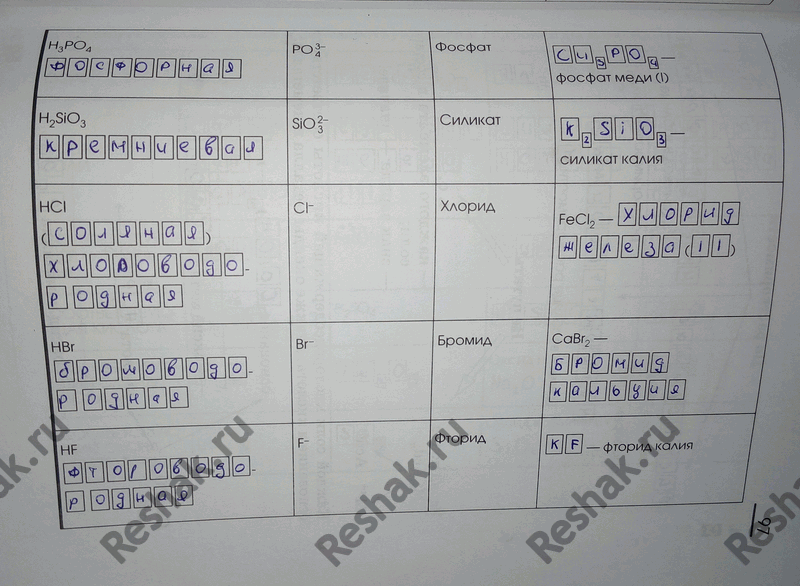 H₃PO₄
фосфорная
PO₄³⁻
Фосфат
Cu₃PO₄ —
фосфат меди (I)
H₂SiO₃
кремниевая
SiO₃²⁻
Силикат
K₂SiO₃ —
силикат калия
HCl
(соляная)
хлороводо-
родная
Cl⁻
Хлорид
FeCl₂ — хлорид
железа (II)
HBr
бромоводо-
родная
Br⁻
Бромид
CaBr₂ —
бромид
кальция
HF
фтороводо-
родная
F⁻
Фторид
KF — фторид калия
97
Reshak.ru
Reshak.ru
Reshak.ru
Reshak.ru
Reshak.ru